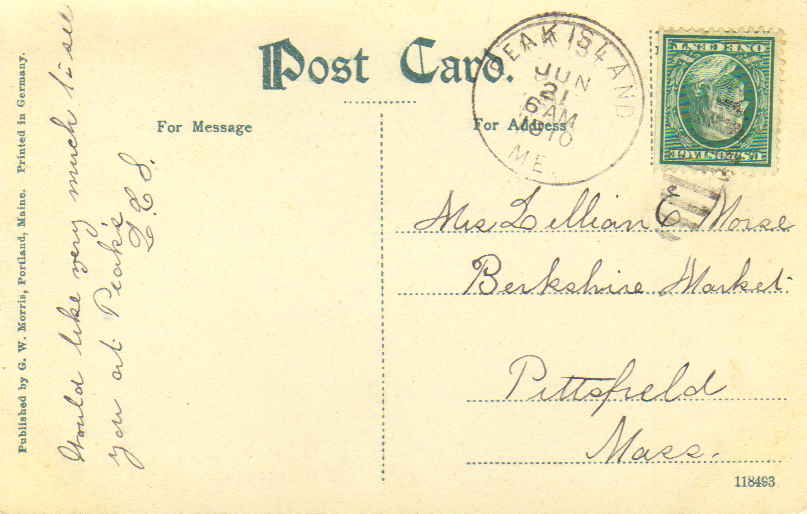 Post Card.
For Message
For Address
PEAK ISLAND
JUN
21
6 AM
1910
ME.
ONE CENT
U.S. POSTAGE
Would like very much to see
you at Peak's
Mrs Lillian C Morse
Berkshire Market
Pittsfield
Mass.
Published by G. W. Morris, Portland, Maine. Printed in Germany.
118493